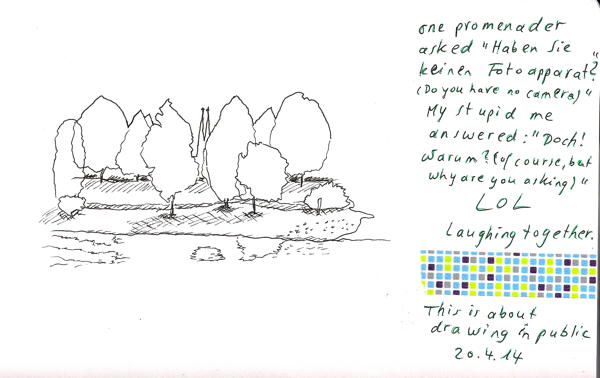 one promenader
asked "Haben Sie
keinen Fotoapparat?"
(Do you have no camera)"
My stupid me
answered: "Doch!
Warum? (of course, but
why are you asking)"
LOL
Laughing together.
This is about
drawing in public
20.4.14